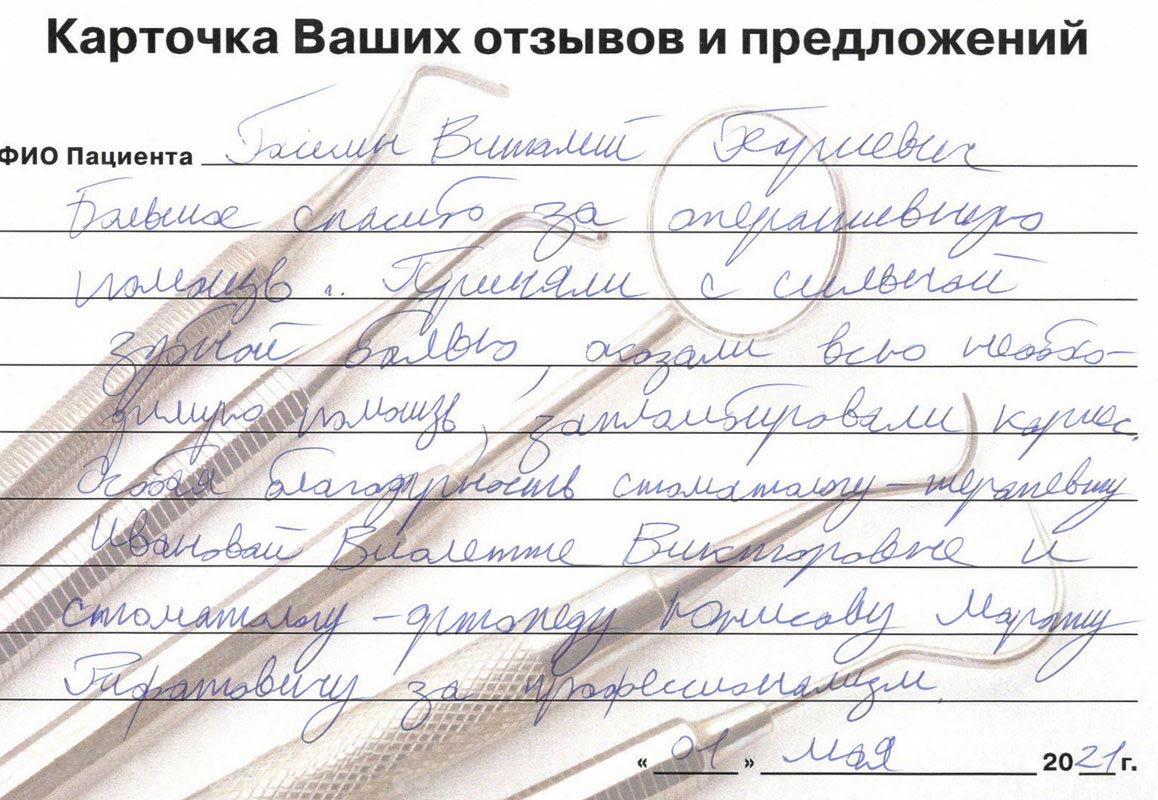 Карточка Ваших отзывов и предложений
ФИО Пациента Виталий
Большое спасибо за оперативную
помощь. Приняли с сильной
зубной болью, оказали всю необхо-
димую помощь, запломбировали кариес.
Особая благодарность стоматологу-терапевту
Ивановой Виолетте Викторовне и
стоматологу-ортопеду Юнисову Марату
Рифатовичу за профессионализм.
« 01 » мая 2021 г.